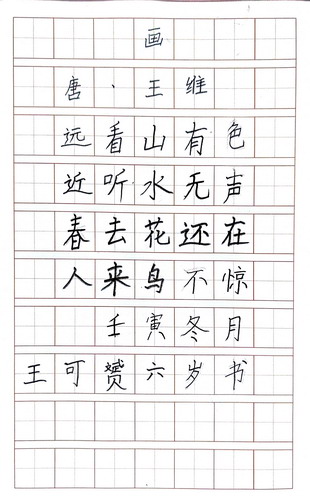 画
唐·王维
远看山有色
近听水无声
春去花还在
人来鸟不惊
壬寅冬月
王可赟六岁书